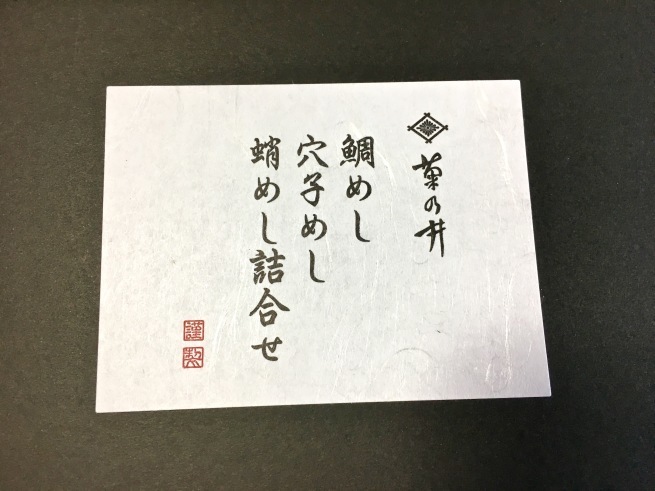 菊乃井
鯛めし
穴子めし
蛸めし詰合せ
謹製